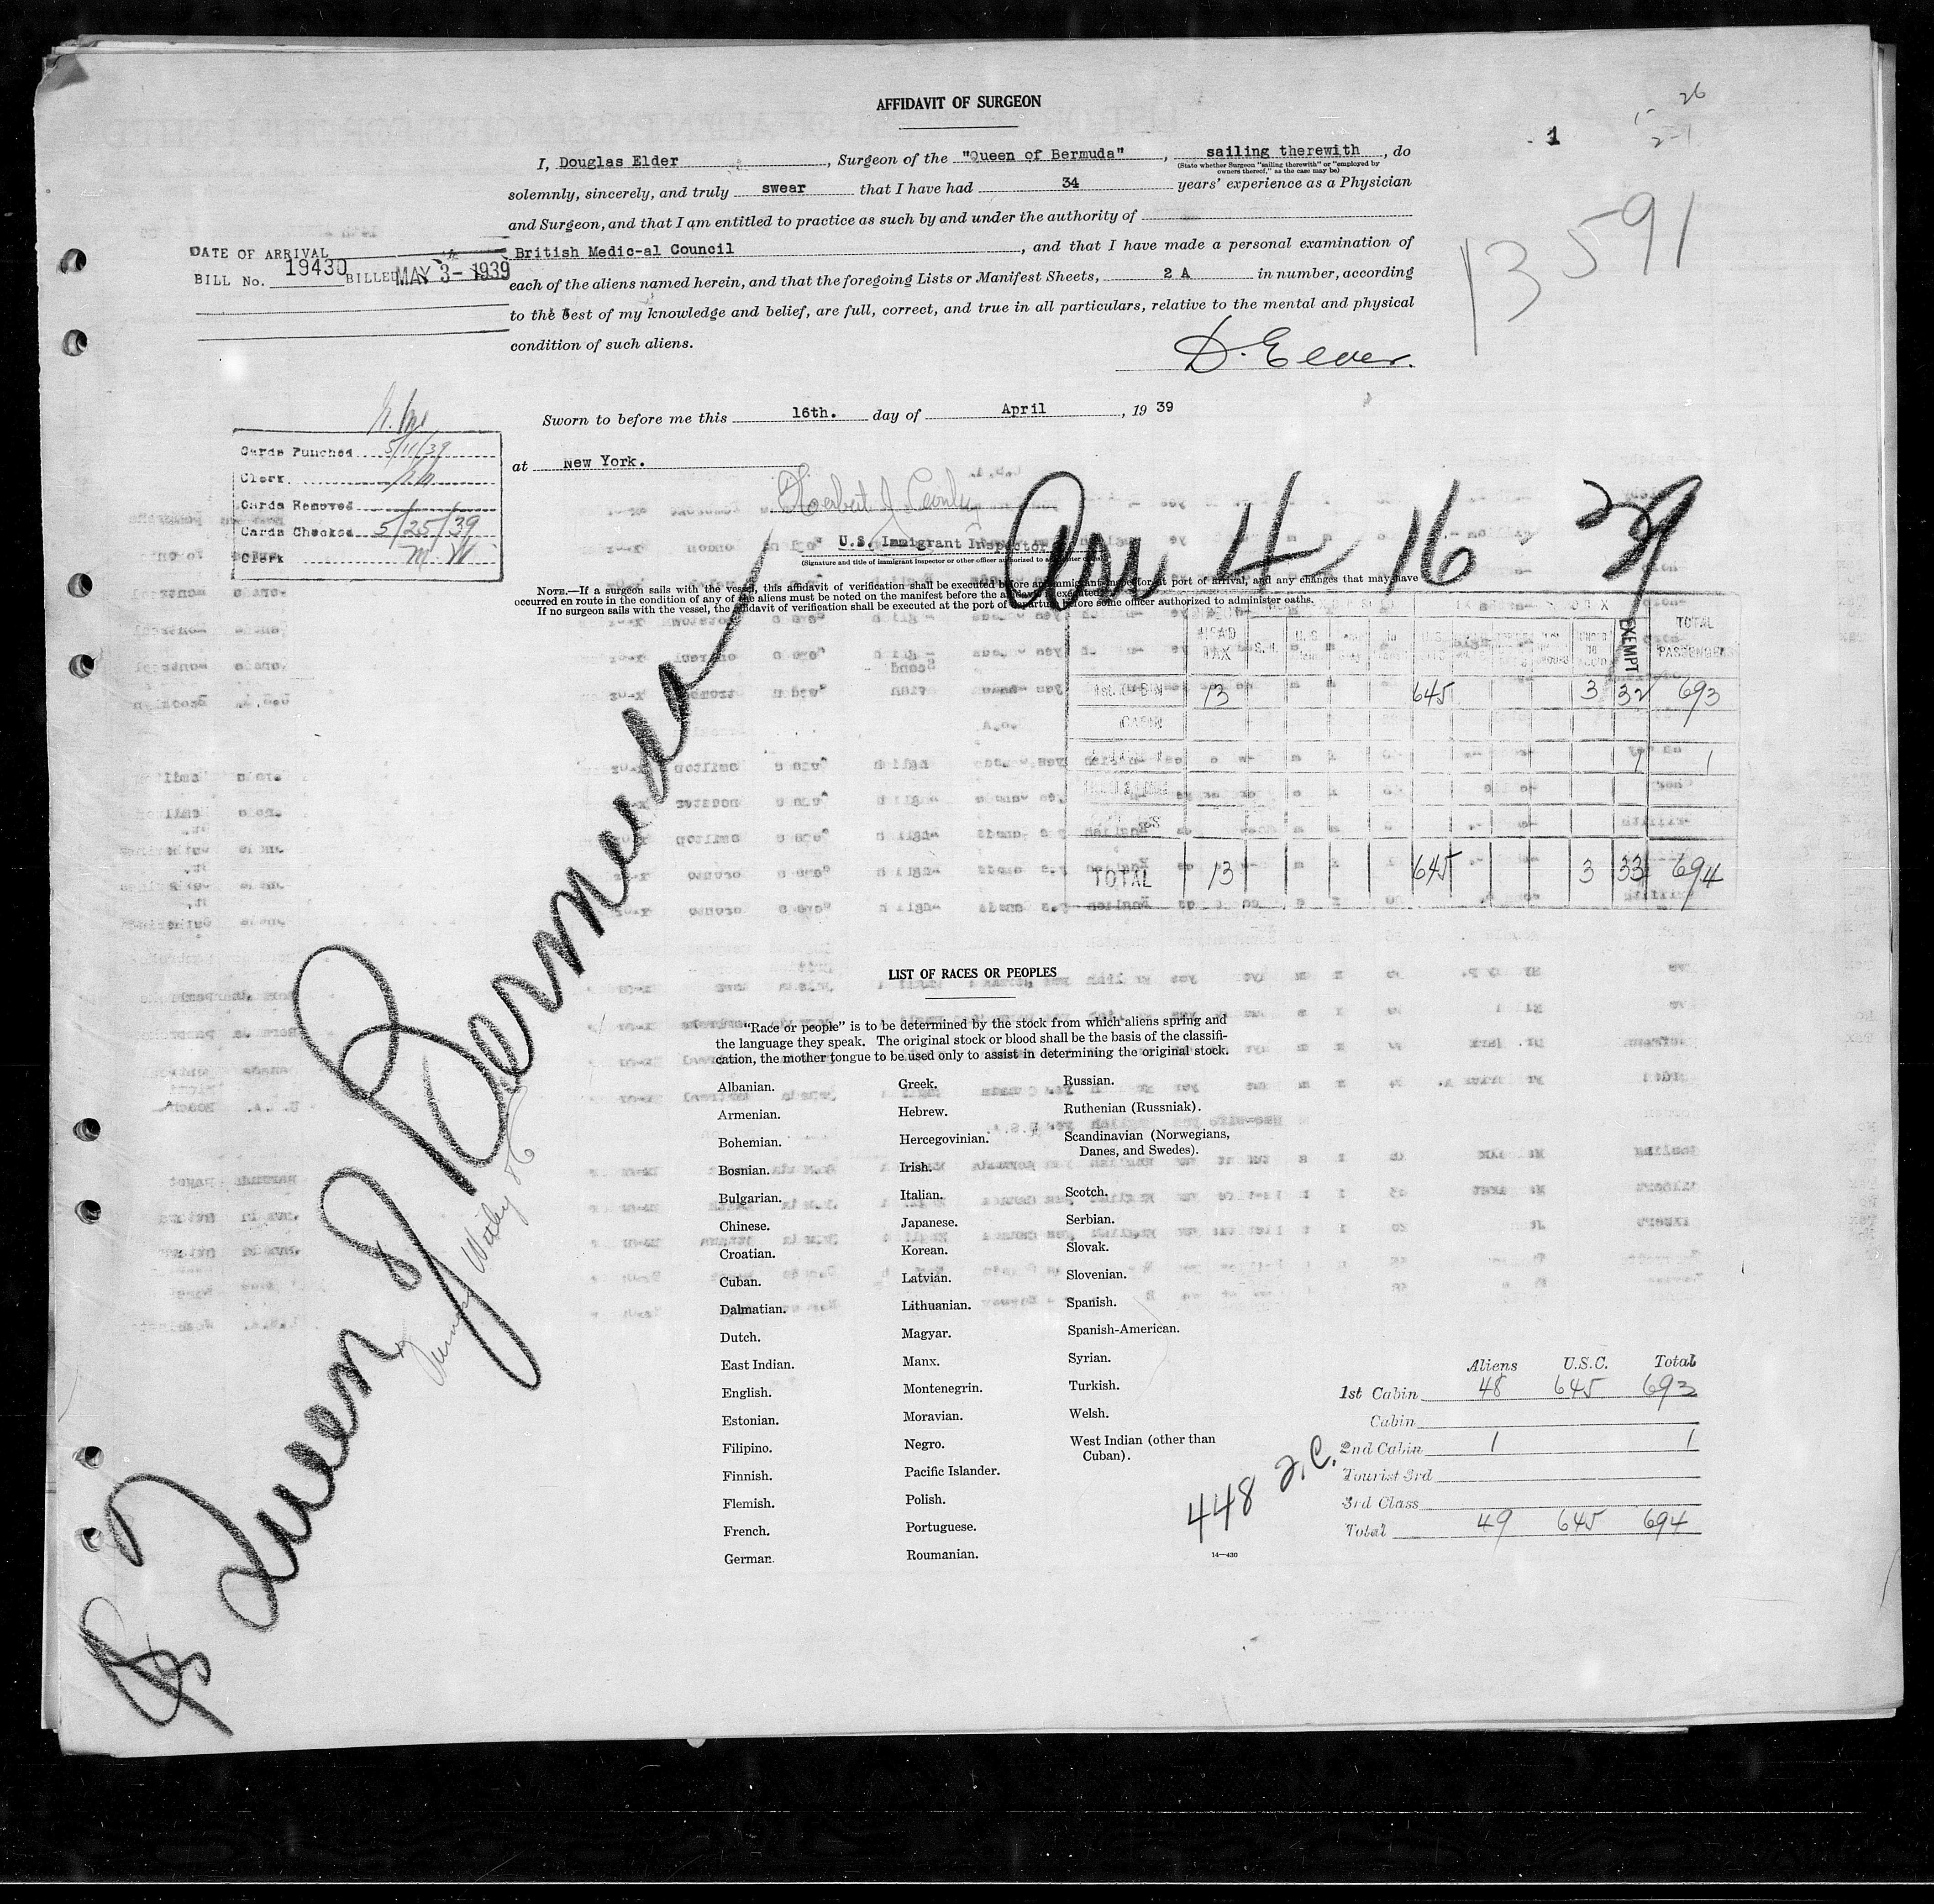 AFFIDAVIT OF SURGEON
1
26
2-1
I, Douglas Elder, Surgeon of the "Queen of Bermuda", sailing therewith, do
(State whether Surgeon "sailing therewith" or "employed by
owners thereof," as the case may be)
solemnly, sincerely, and truly swear that I have had 34 years' experience as a Physician
and Surgeon, and that I am entitled to practice as such by and under the authority of
British Medic-al Council, and that I have made a personal examination of
each of the aliens named herein, and that the foregoing Lists or Manifest Sheets, 2 A in number, according
to the best of my knowledge and belief, are full, correct, and true in all particulars, relative to the mental and physical
condition of such aliens.
13591
DATE OF ARRIVAL
BILL No. 19430 BILLED MAY 3- 1939
Sworn to before me this 16th. day of April, 19 39
at New York.
U.S. Immigrant Inspector
(Signature and title of immigrant inspector or other officer authorized to
Cards Punched 5/11/39
Clerk
Cards Removed
Cards Checked 5/25/39
Clerk M. W
Arr 4 16 39
NOTE.—If a surgeon sails with the vessel, this affidavit of verification shall be executed before an immigrant inspector at port of arrival, and any changes that may have
occurred en route in the condition of any of the aliens must be noted on the manifest before the affidavit is executed.
If no surgeon sails with the vessel, the affidavit of verification shall be executed at the port of departure before some officer authorized to administer oaths.
HEAD TAX EXEMPT TOTAL PASSENGERS
13 645 3 32 693
1 1
TOTAL 13 645 3 33 694
Queen of Bermuda
LIST OF RACES OR PEOPLES
"Race or people" is to be determined by the stock from which aliens spring and
the language they speak. The original stock or blood shall be the basis of the classifi-
cation, the mother tongue to be used only to assist in determining the original stock.
Albanian.
Armenian.
Bohemian.
Bosnian.
Bulgarian.
Chinese.
Croatian.
Cuban.
Dalmatian.
Dutch.
East Indian.
English.
Estonian.
Filipino.
Finnish.
Flemish.
French.
German.
Greek.
Hebrew.
Hercegovinian.
Irish.
Italian.
Japanese.
Korean.
Latvian.
Lithuanian.
Magyar.
Manx.
Montenegrin.
Moravian.
Negro.
Pacific Islander.
Polish.
Portuguese.
Roumanian.
Russian.
Ruthenian (Russniak).
Scandinavian (Norwegians,
Danes, and Swedes).
Scotch.
Serbian.
Slovak.
Slovenian.
Spanish.
Spanish-American.
Syrian.
Turkish.
Welsh.
West Indian (other than
Cuban).
14—430
448
Aliens U.S.C. Total
1st Cabin 48 645 693
Cabin
2nd Cabin 1 1
Tourist 3rd
3rd Class
Total 49 645 694